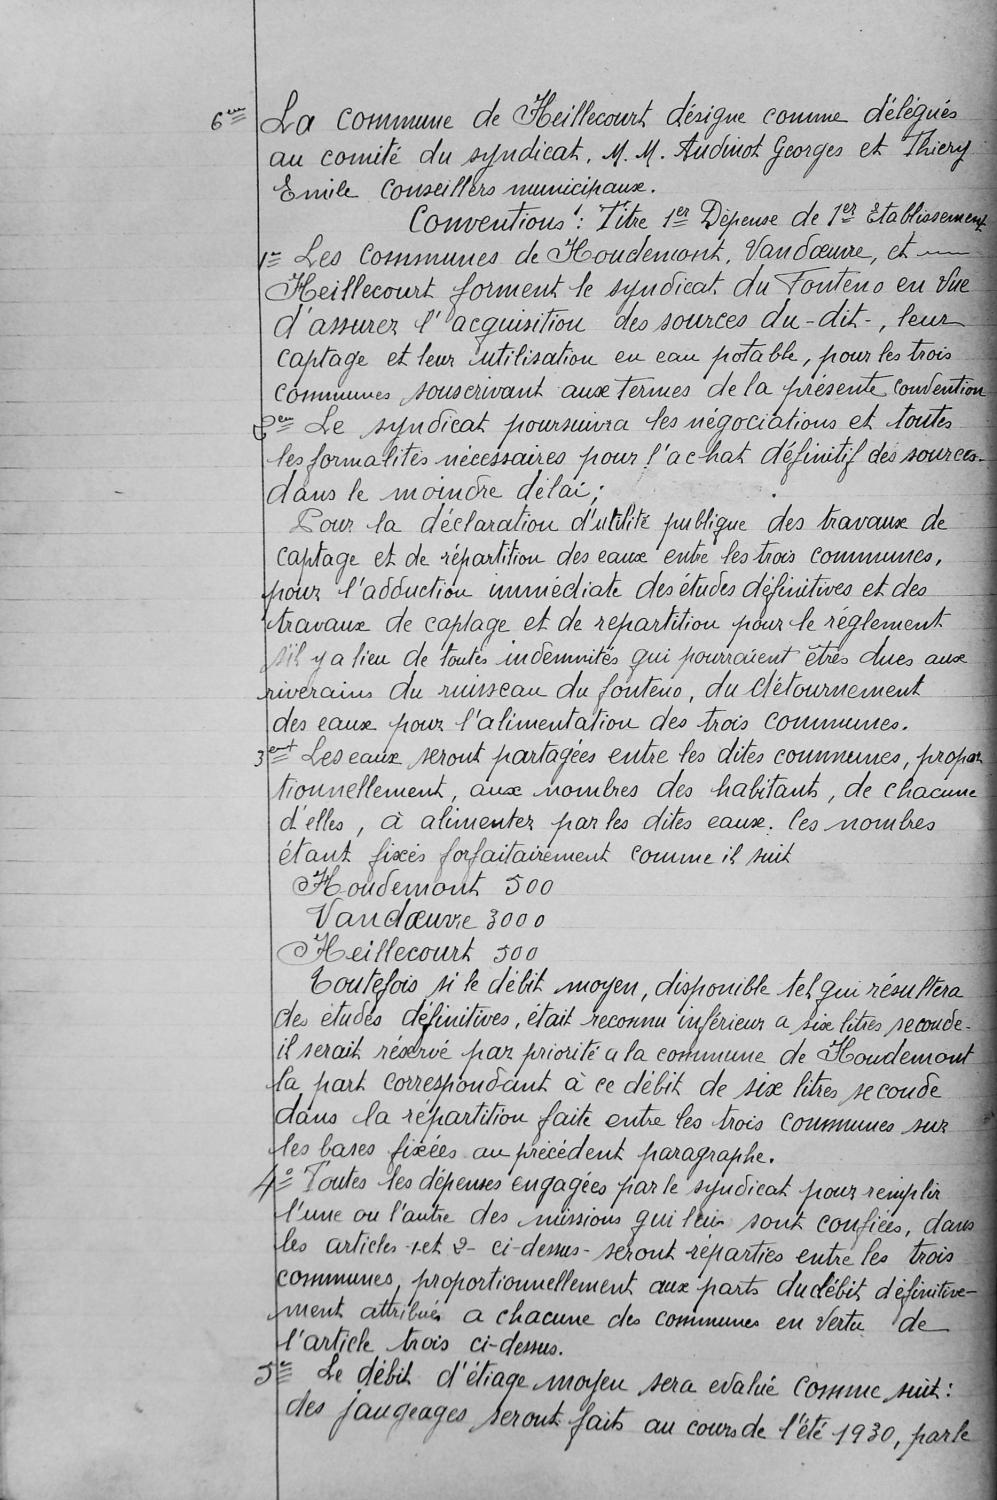 6ème La commune de Heillecourt désigne comme délégués
au comité du syndicat, M. M. Audinot Georges et Thiery
Emile conseillers municipaux.
Conventions : Titre 1er Dépense de 1er Etablissement
1er Les communes de Houdemont, Vandœuvre, et
Heillecourt forment le syndicat du Fonteno en vue
d'assurer l'acquisition des sources du-dit-, leur
captage et leur utilisation en eau potable, pour les trois
communes souscrivant aux termes de la présente convention
2em Le syndicat poursuivra les négociations et toutes
les formalités nécessaires pour l'achat définitif des sources-
dans le moindre délai;
Pour la déclaration d'utilité publique des travaux de
captage et de répartition des eaux entre les trois communes,
pour l'adduction immédiate des études définitives et des
travaux de captage et de repartition pour le réglement
s'il y a lieu de toutes indemnités qui pourraient êtres dues aux
riverains du ruisseau du fonteno, du détournement
des eaux pour l'alimentation des trois communes.
3ent Les eaux seront partagées entre les dites communes, propor
tionnellement, aux nombres des habitants, de chacune
d'elles, à alimenter par les dites eaux. Ces nombres
étant fixés forfaitairement comme il suit
Houdemont 500
Vandœuvre 3000
Heillecourt 500
Toutefois si le débit moyen, disponible tel qui résultera
des études définitives, était reconnu inférieur a six litres seconde-
il serait réservé par priorité a la commune de Houdemont
la part correspondant à ce débit de six litres seconde
dans la répartition faite entre les trois communes sur
les bases fixées au précédent paragraphe.
4° Toutes les dépenses engagées par le syndicat pour remplir
l'une ou l'autre des missions qui leur sont confiées, dans
les articles -1 et 2- ci-dessus- seront réparties entre les trois
communes, proportionnellement aux parts du débit définitive-
ment attribués a chacune des communes en vertu de
l'article trois ci-dessus.
5e Le débit d'étiage moyen sera evalué comme suit :
des jaugeages seront faits au cours de l'été 1930, par le